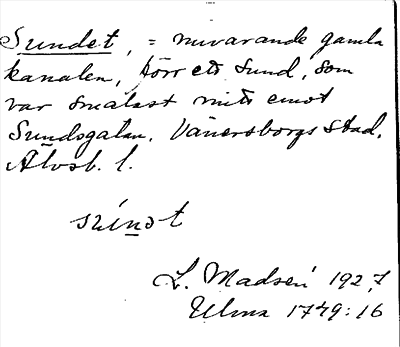 Sundet, = nuvarande gamla
kanalen, förr ett sund, som
var smalast mitt emot
Sundsgatan. Vänersborgs Stad.
Älvsb. l.
L. Madsén 1927
Ulma 1749:16